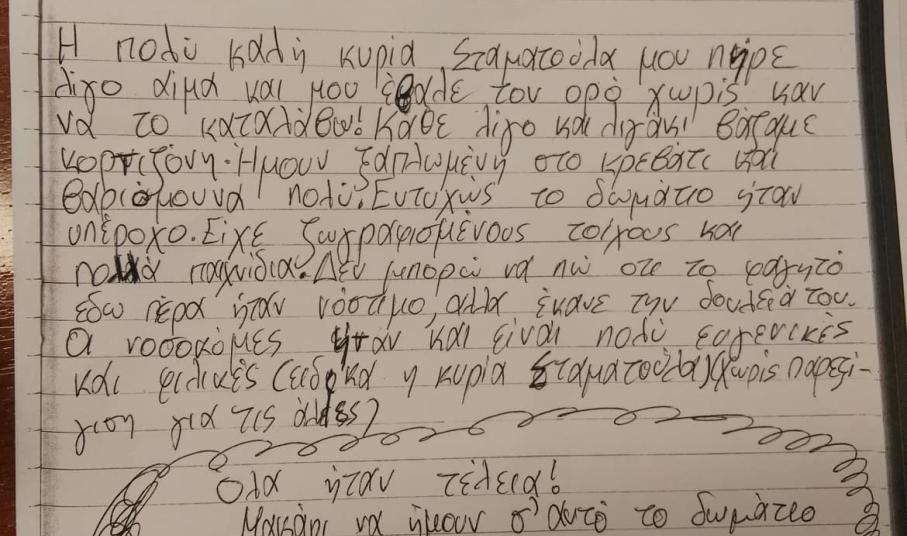 Η πολύ καλή κυρία Σταματούλα μου πήρε
λίγο αίμα και μου έβαλε τον ορό χωρίς καν
να το καταλάβω! Κάθε λίγο και λιγάκι βάζαμε
κορτιζόνη. Ήμουν ξαπλωμένη στο κρεβάτι και
βαριόμουνα πολύ. Ευτυχώς το δωμάτιο ήταν
υπέροχο. Είχε ζωγραφισμένους τοίχους και
πολλά παιχνίδια. Δεν μπορώ να πω οτι το φαγητό
εδω πέρα ήταν νόστιμο, αλλα έκανε την δουλειά του.
Οι νοσοκόμες ήταν και είναι πολύ ευγενικές
και φιλικές (ειδικα η κυρία Σταματούλα) (χωρίς παρεξή-
γιση για τις άλλες)
Ολα ήταν τέλεια!
Μακάρι να ήμουν σ' αυτό το δωμάτιο